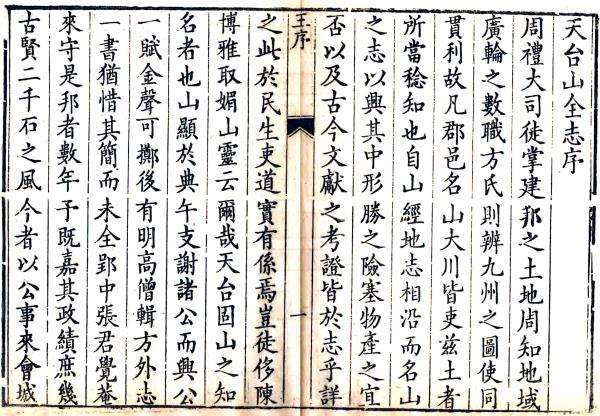 天台山全志序
周禮大司徒掌建邦之土地周知地域
廣輪之數職方氏則辨九州之圖使同
貫利故凡郡邑名山大川皆吏兹土者
所當稔知也自山經地志相沿而名山
之志以興其中形勝之險塞物產之宜
否以及古今文獻之考證皆於志乎詳
王序
一
之此於民生吏道實有係焉豈徒侈陳
博雅取媚山靈云爾哉天台固山之知
名者也山顯於典午支謝諸公而興公
一賦金聲可擲後有明高僧輯方外志
一書猶惜其簡而未全郢中張君覺菴
來守是邦者數年予既嘉其政績庶幾
古賢二千石之風今者以公事來會城